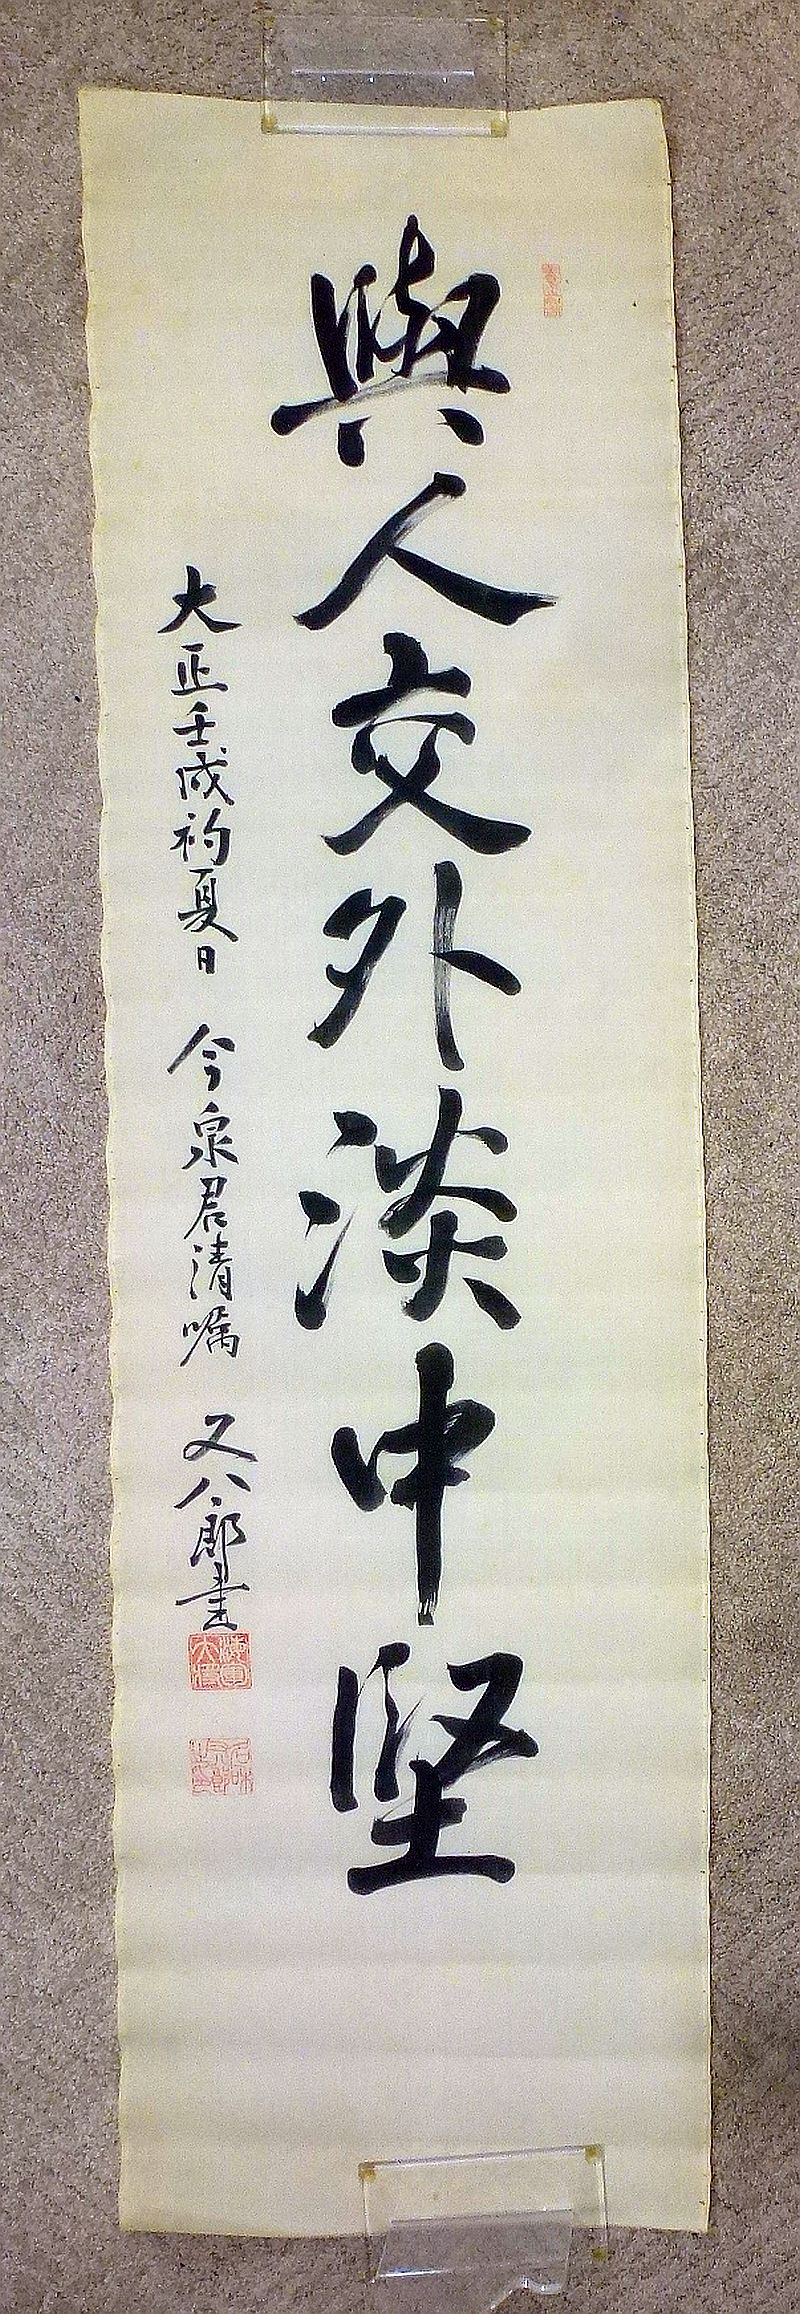 與人交外淡中堅
大正壬戌礿夏日 今泉君清嘱 又八郎書